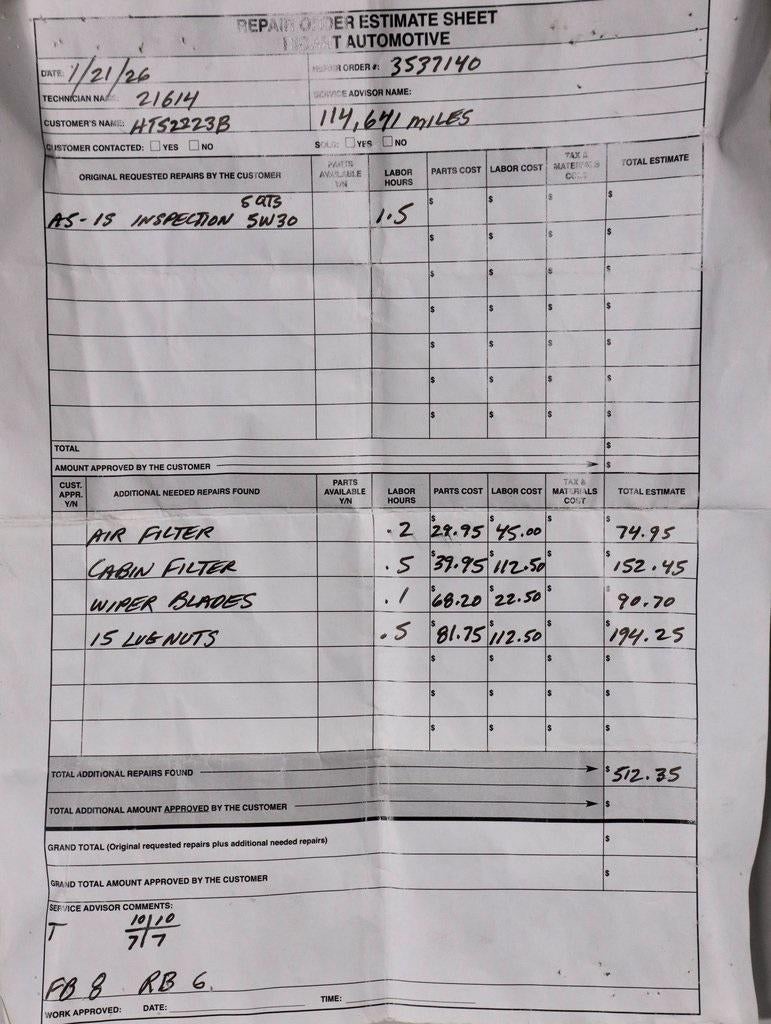 REPAIR ORDER ESTIMATE SHEET
T AUTOMOTIVE
DATE: 1/21/26
REPAIR ORDER #: 3537140
TECHNICIAN NAME: 21614
SERVICE ADVISOR NAME:
CUSTOMER'S NAME: HTS2223B
114,641 MILES
CUSTOMER CONTACTED: ☐ YES ☐ NO
SOLD: ☐ YES ☐ NO
ORIGINAL REQUESTED REPAIRS BY THE CUSTOMER PARTS AVAILABLE Y/N LABOR HOURS PARTS COST LABOR COST TAX & MATERIALS COST TOTAL ESTIMATE
5 QTS
AS-IS INSPECTION 5W30 1.5 $ $ $ $
$ $ $ $
$ $ $ $
$ $ $ $
$ $ $ $
$ $ $ $
$ $ $ $
TOTAL $
AMOUNT APPROVED BY THE CUSTOMER $
CUST. APPR. Y/N ADDITIONAL NEEDED REPAIRS FOUND PARTS AVAILABLE Y/N LABOR HOURS PARTS COST LABOR COST TAX & MATERIALS COST TOTAL ESTIMATE
AIR FILTER .2 $29.95 $45.00 $ $74.95
CABIN FILTER .5 $39.95 $112.50 $ $152.45
WIPER BLADES .1 $68.20 $22.50 $ $90.70
15 LUG NUTS .5 $81.75 $112.50 $ $194.25
$ $ $ $
$ $ $ $
$ $ $ $
TOTAL ADDITIONAL REPAIRS FOUND $512.35
TOTAL ADDITIONAL AMOUNT APPROVED BY THE CUSTOMER $
GRAND TOTAL (Original requested repairs plus additional needed repairs) $
GRAND TOTAL AMOUNT APPROVED BY THE CUSTOMER $
SERVICE ADVISOR COMMENTS:
T 10/10
7/7
FB 8 RB 6
WORK APPROVED: DATE: TIME: